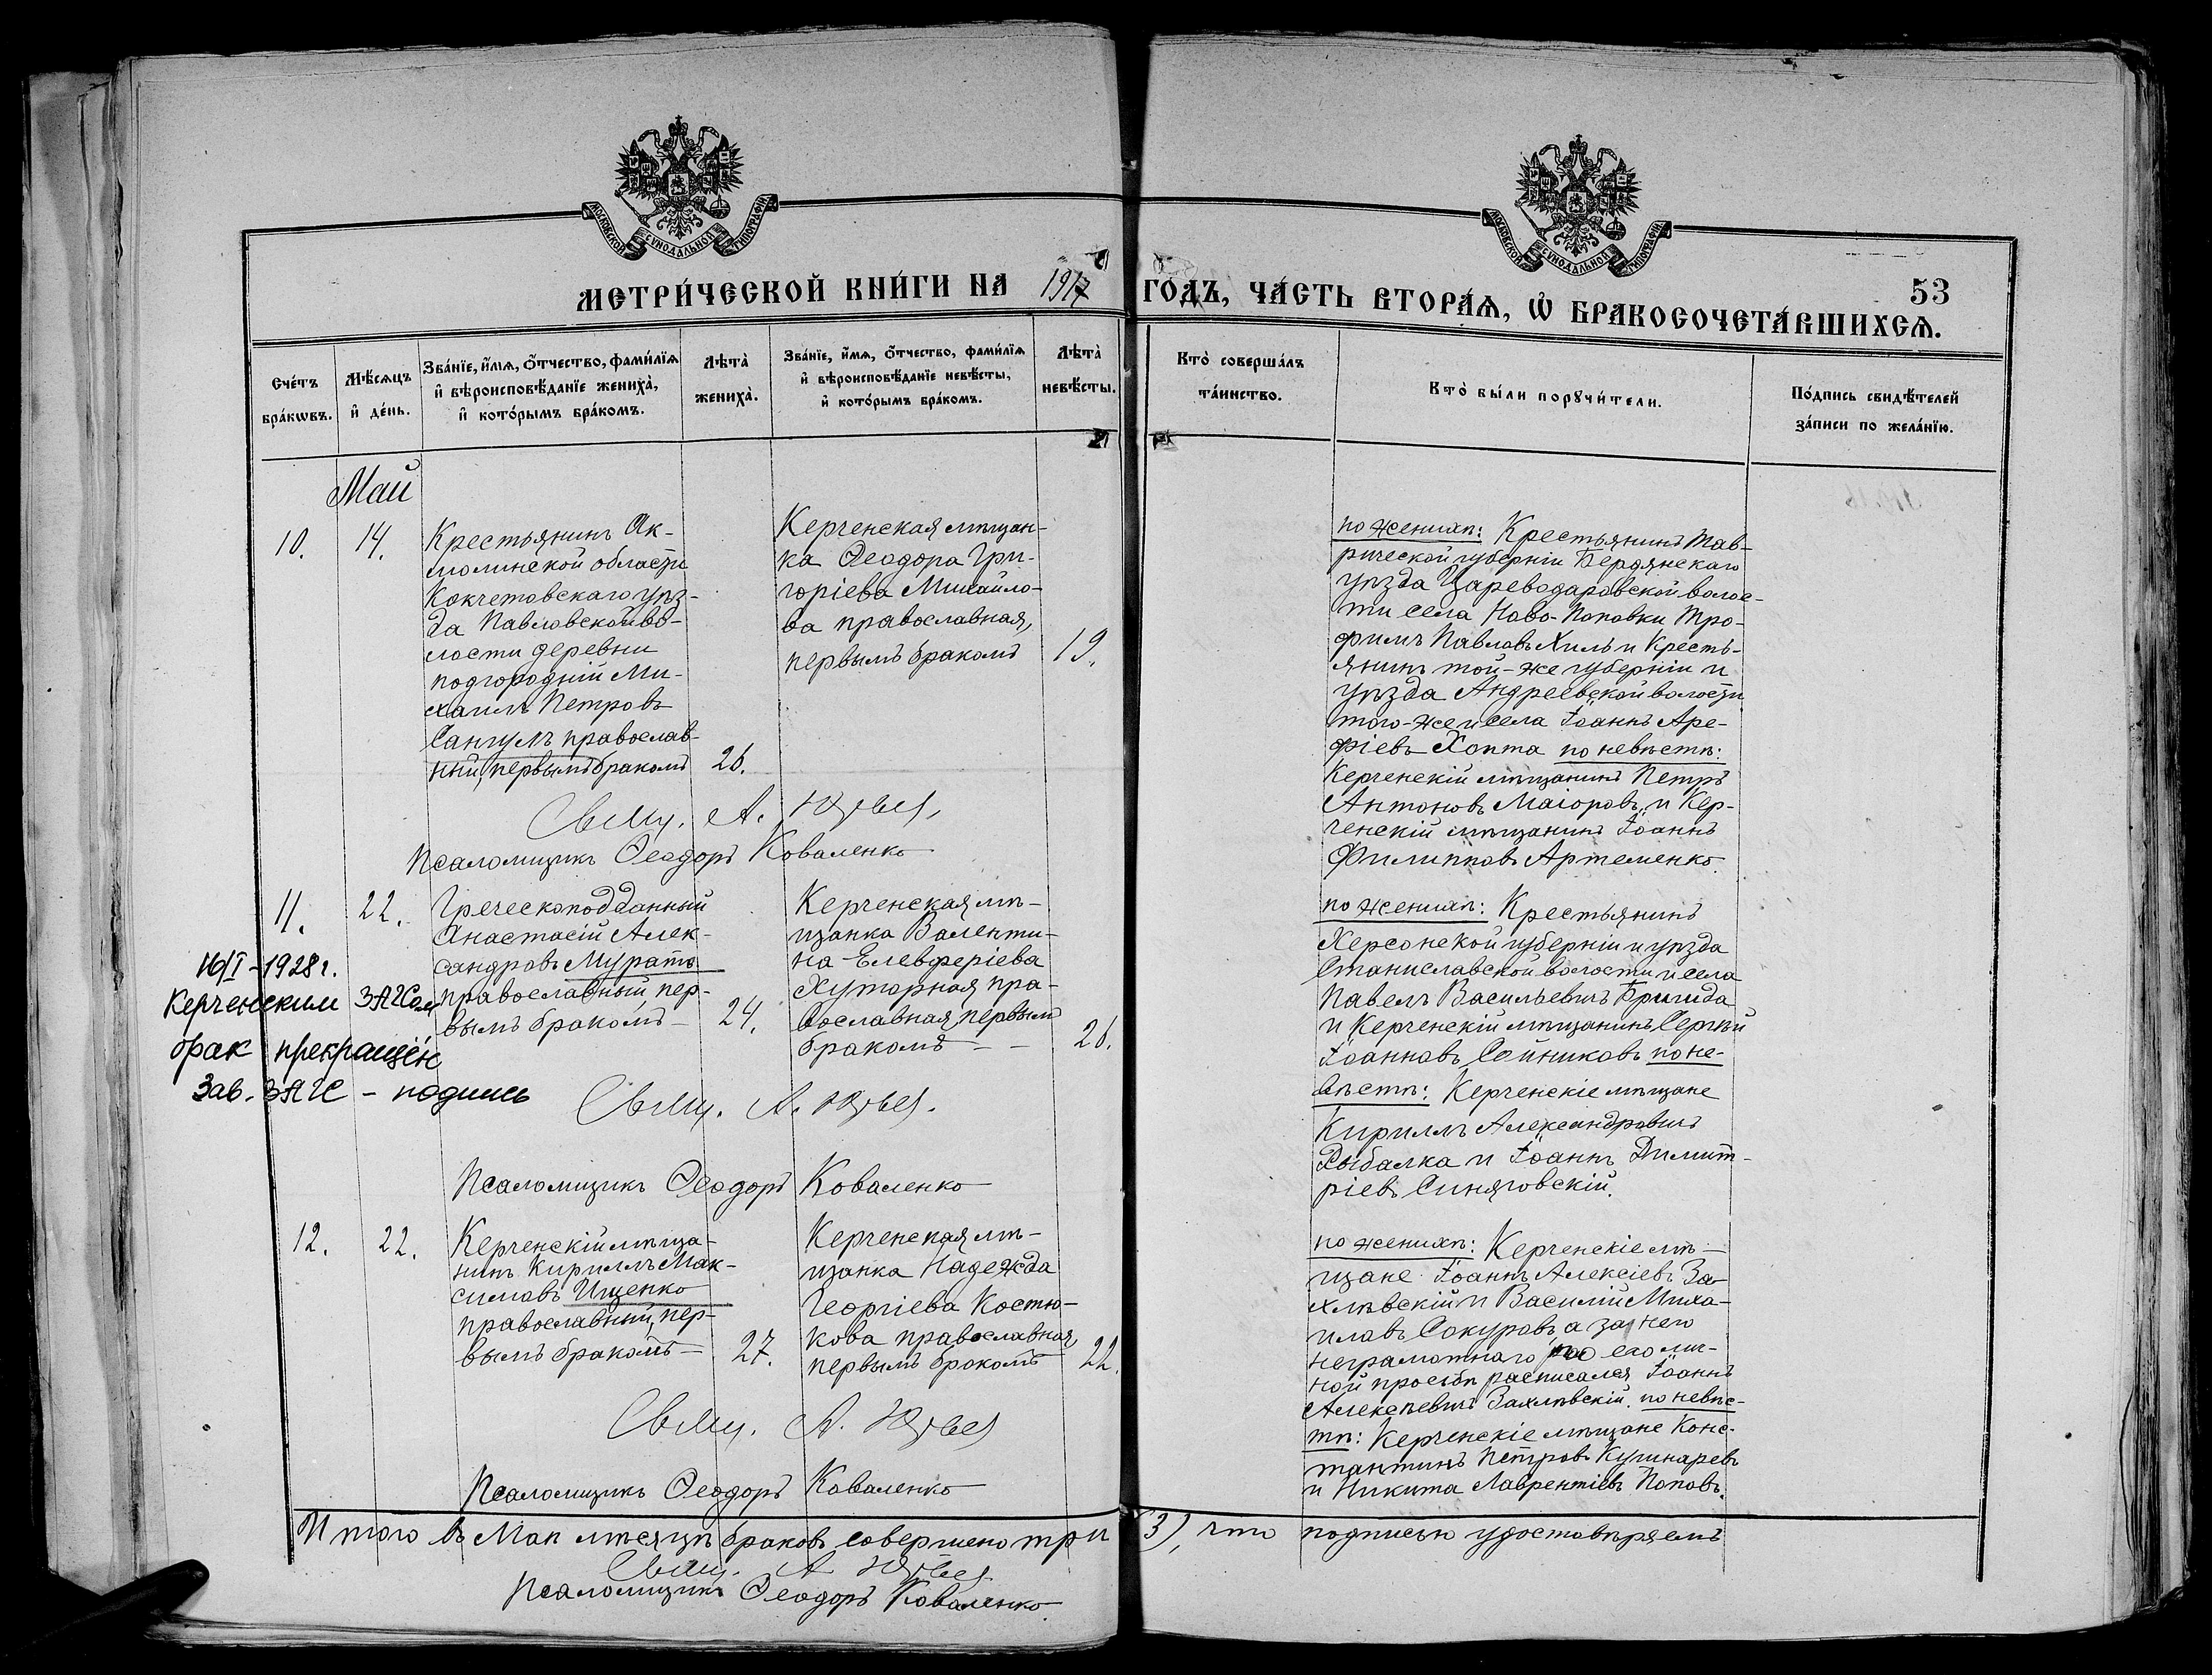 МОСКОВСКОЙ СУНОДАЛЬНОЙ ТИПОГРАФІИ
МОСКОВСКОЙ СУНОДАЛЬНОЙ ТИПОГРАФІИ
53
МЕТРИ́ЧЕСКОЙ КНИ́ГИ НА 1917 ГО́ДЪ, ЧА́СТЬ ВТОРА́Ѧ, Ѽ БРАКОСОЧЕТА́ВШИХСѦ.
Сче́тъ бра́кѡвъ.
Мѣ́сѧцъ и҆ де́нь.
Зва́нїе, и҆́мѧ, ѻ҆́тчество, фами́лїѧ
и҆ вѣроисповѣ́данїе жениха̀,
и҆ кото́рымъ бра́комъ.
Лѣта̀ жениха̀.
Зва́нїе, и҆́мѧ, ѻ҆́тчество, фами́лїѧ
и҆ вѣроисповѣ́данїе невѣ́сты,
и҆ кото́рымъ бра́комъ.
Лѣта̀ невѣ́сты.
Кто̀ соверша́лъ
та́инство.
Кто̀ бы́ли порꙋчи́тели.
По́дпись свидѣ́телей
за́писи по жела́нїю.
Май
10.
14.
Крестьянинъ Ак-
молинской области
Кокчетавскаго уѣз-
да Павловской во-
лости деревни
подгородній Ми-
хаилъ Петровъ
Сангулъ православ-
ный, первымъ бракомъ
26.
Керченская мѣщан-
ка Ѳеодора Гри-
горіева Михайло-
ва православная,
первымъ бракомъ
19.
по женихѣ: Крестьянинъ Тав-
рической губерніи Бердянскаго
уѣзда Цареводаровской волос-
ти села Ново-Поповки Тро-
фимъ Павловъ Хиль и Кресть-
янинъ той-же губерніи и
уѣзда Андреевской волости
того-же и села Іоаннъ Аре-
фіевъ Хопта по невѣстѣ:
Керченскій мѣщанинъ Петръ
Антоновъ Маіоровъ, и Кер-
ченскій мѣщанинъ Іоаннъ
Филипповъ Артеменко.
Свящ. А.
Псаломщикъ Ѳеодоръ Коваленко
11.
22.
Греческоподданный
Анастасій Алек-
сандровъ Муратъ
православный, пер-
вымъ бракомъ
24.
Керченская мѣ-
щанка Валенти-
на Елевферіева
Хуторная пра-
вославная, первым
бракомъ
26.
16/I-1928 г.
Керченским ЗАГСом
брак прекращён
Зав. ЗАГС - подпись
по женихѣ: Крестьянинъ
Херсонской губерніи и уѣзда
Станиславской волости и села
Павелъ Васильевичъ Бригида
и Керченскій мѣщанинъ Сергѣй
Іоанновъ Сойниковъ по не-
вѣстѣ: Керченскіе мѣщане
Кириллъ Александровичъ
Рыбалка и Іоаннъ Димит-
ріевъ Синяговскій.
Свящ. А.
Псаломщикъ Ѳеодоръ Коваленко
12.
22.
Керченскій мѣща-
нинъ Кириллъ Мак-
симовъ Ищенко
православный, пер-
вымъ бракомъ
27.
Керченская мѣ-
щанка Надежда
Георгіева Костю-
кова православная,
первымъ бракомъ
22.
по женихѣ: Керченскіе мѣ-
щане Іоаннъ Алексіевъ За-
хлѣвскій и Василій Миха-
иловъ Сокуровъ, а за него
неграмотнаго по его лич-
ной просьбѣ расписался Іоаннъ
Алексѣевичъ Захлѣвскій. по невѣс-
тѣ: Керченскіе мѣщане Конс-
тантинъ Петровъ Кушнаревъ
и Никита Лаврентіевъ Поповъ.
Свящ. А.
Псаломщикъ Ѳеодоръ Коваленко
Итого въ Маѣ мѣсяцѣ браковъ совершено три (3), что подписью удостовѣряемъ
Свящ. А.
Псаломщикъ Ѳеодоръ Коваленко.